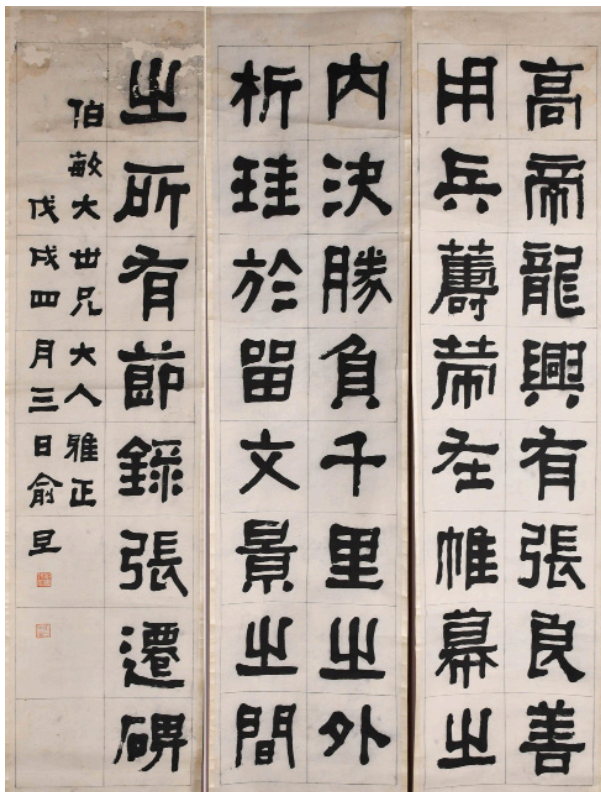 高帝龍興有張良善
用兵籌策在帷幕之
内決勝負千里之外
析珪於留文景之間
之所有節錄張遷碑
伯敏大世兄大人雅正
戊戌四月三日俞旦